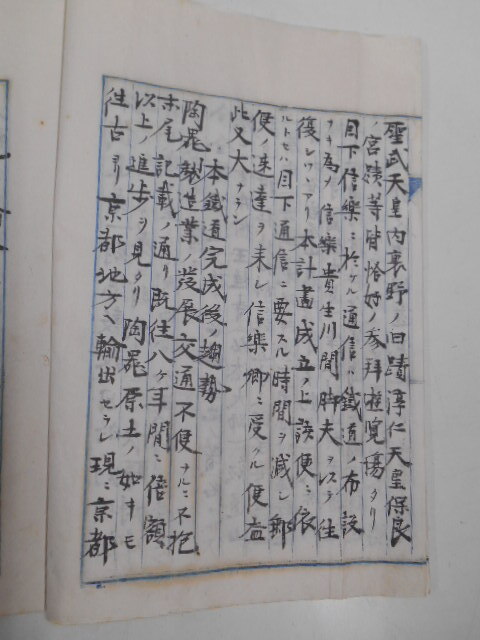 聖武天皇内裏野ノ旧蹟淳仁天皇保良
宮蹟等皆恰好ノ参拝遊覧場タリ
目下信楽ニ於ケル通信ハ鉄道ノ布設
ナキ為メ信楽貴生川間脚夫ヲ以テ往
復シツヽアリ本計畫成立ノ上該便ニ依
ルトセハ目下通信ニ要スル時間ヲ減シ郵
便ノ速達ヲ来シ信楽郷ニ受クル便益
此又大ナラン
本鐵道完成後ノ趨勢
陶器製造業ノ発展交通不便ナルニ不拘
末尾記載ノ通リ既往八ヶ年間ニ倍額
以上ノ進歩ヲ見タリ陶器原土ノ如キモ
往古ヨリ京都地方ヘ輸出セラレ現ニ京都